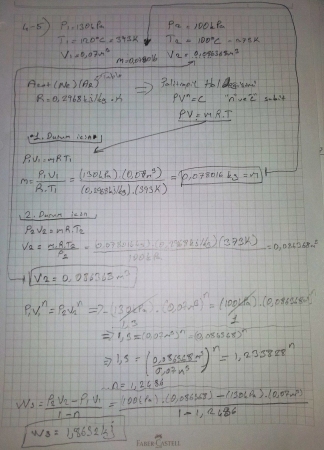 4-5) P1=130kPa P2=100kPa
T1=120°C=393K T2=100°C=373K
V1=0,07m³ V2=0,086368m³
m=0,078016
Azot (N2) => Politropik Hal Değişimi
R=0,2968kJ/kg·K PVⁿ=C "n ve C sabit"
PV=mR.T
1. Durum için
P1V1=mRT1
m=P1V1/R.T1=(130kPa).(0,07m³)/(0,2968kJ/kg).(393K)=0,078016kg=m
2. Durum için
P2V2=mR.T2
V2=mR.T2/P2=(0,078016kg).(0,2968kJ/kg)(373K)/100kPa=0,086368m³
V2=0,086368m³
P1V1ⁿ=P2V2ⁿ =>(130kPa).(0,07m³)ⁿ=(100kPa).(0,086368)ⁿ
1,3 1
=>1,3=(0,07m³)ⁿ=(0,086368)ⁿ
=>1,3=(0,086368m³/0,07m³)ⁿ=1,233828ⁿ
n=1,2486
=P2V2-P1V1/1-n=(100kPa).(0,086368)-(130kPa).(0,07m³)/1-1,2486
=1,8652kj
FABER-CASTELL